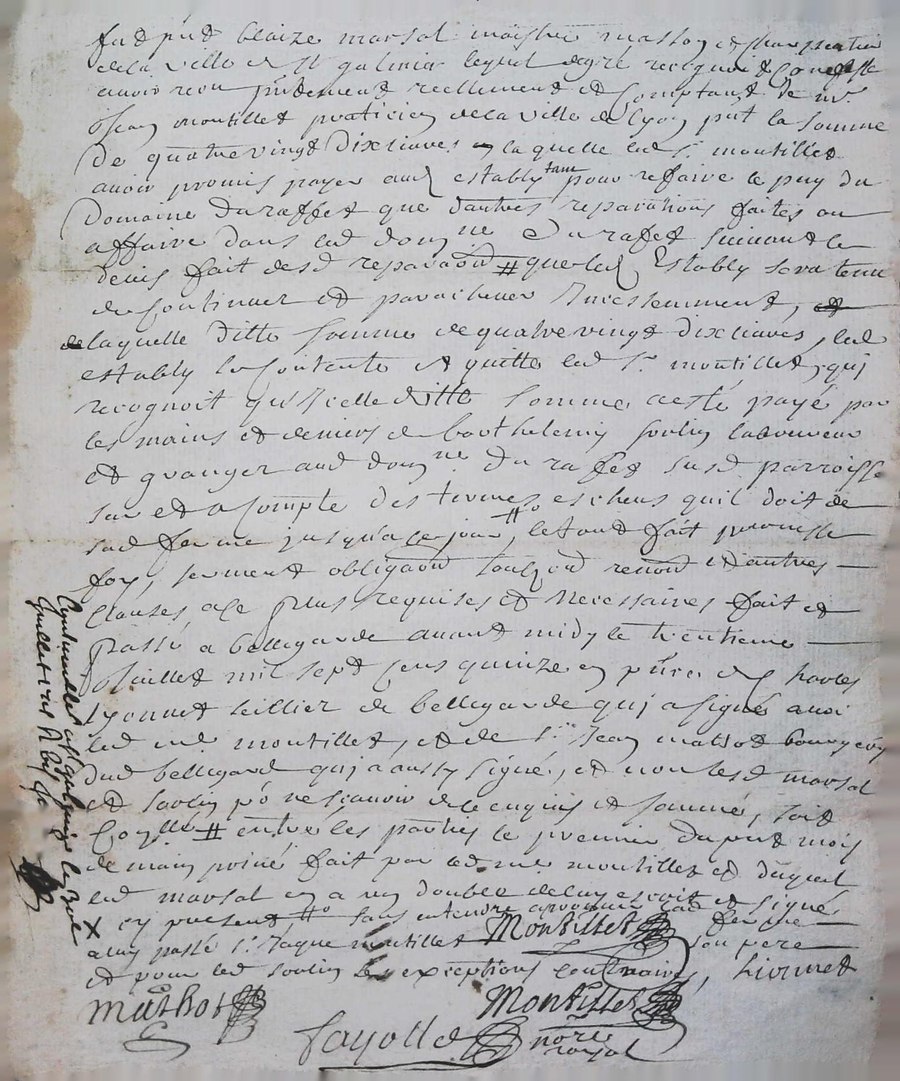 fut pnt blaize marsal maistre masson et charpentier
de la ville de St galmier lequel de gré recognoit
avoir receu pntement reellement et comptant de mr
montillet praticien de la ville de lyon pnt la somme
de quatre vingt dix livres laquelle led Sr montillet
avoir promis payer aud estably tant pour reffaire le puy du
Domaine du raffet que d'autres reparations faites ou
a ffaire dans led dom ne du rafet suivant le
devis fait desd reparaons # que led Estably sera tenu
de continuer et parachever Incessemment,
de laquelle ditte somme de quatre vingt dix livres, led
estably se Contente et quitte led Sr montillet, qui
recognoit qu'Icelle ditte somme a esté payé par
les mains et deniers de barthelemy soulin laboureur
et granger aud dom ne du rafet susd parroisse
sur et a Compte des termes escheus qu'il doit de
sad ferme jusqu'a ce jour, le tout fait promesse
foy, serment obligaon renon et autres
Clauses a ce plus requises et Necessaires fait et
passé a bellegarde avant midy le trentieme
Juillet mil sept cens quinze en pnce de Charles
Lyonnet tellier de bellegarde qui a signé avec
led mr montillet, et de Sr Jean mathot bourgeois
dud bellegard qui a aussy signé, et non lesd marsal
et soulin pr ne scavoir de ce enquis et sommé,
# entre les parties le premier du pnt mois
de main privé fait par led mr montillet et duquel
led marsal en a un double de luy escrit et signé
X cy present # sans entendre aud ferme
a luy passé Sr Jaque montillet son pere
et pour led soulin les exceptions contraires, Lionnet
Montillet
mathot
Montillet
fayolle
nore
royal
Controllé a St galmier le
Juillet 1715 R